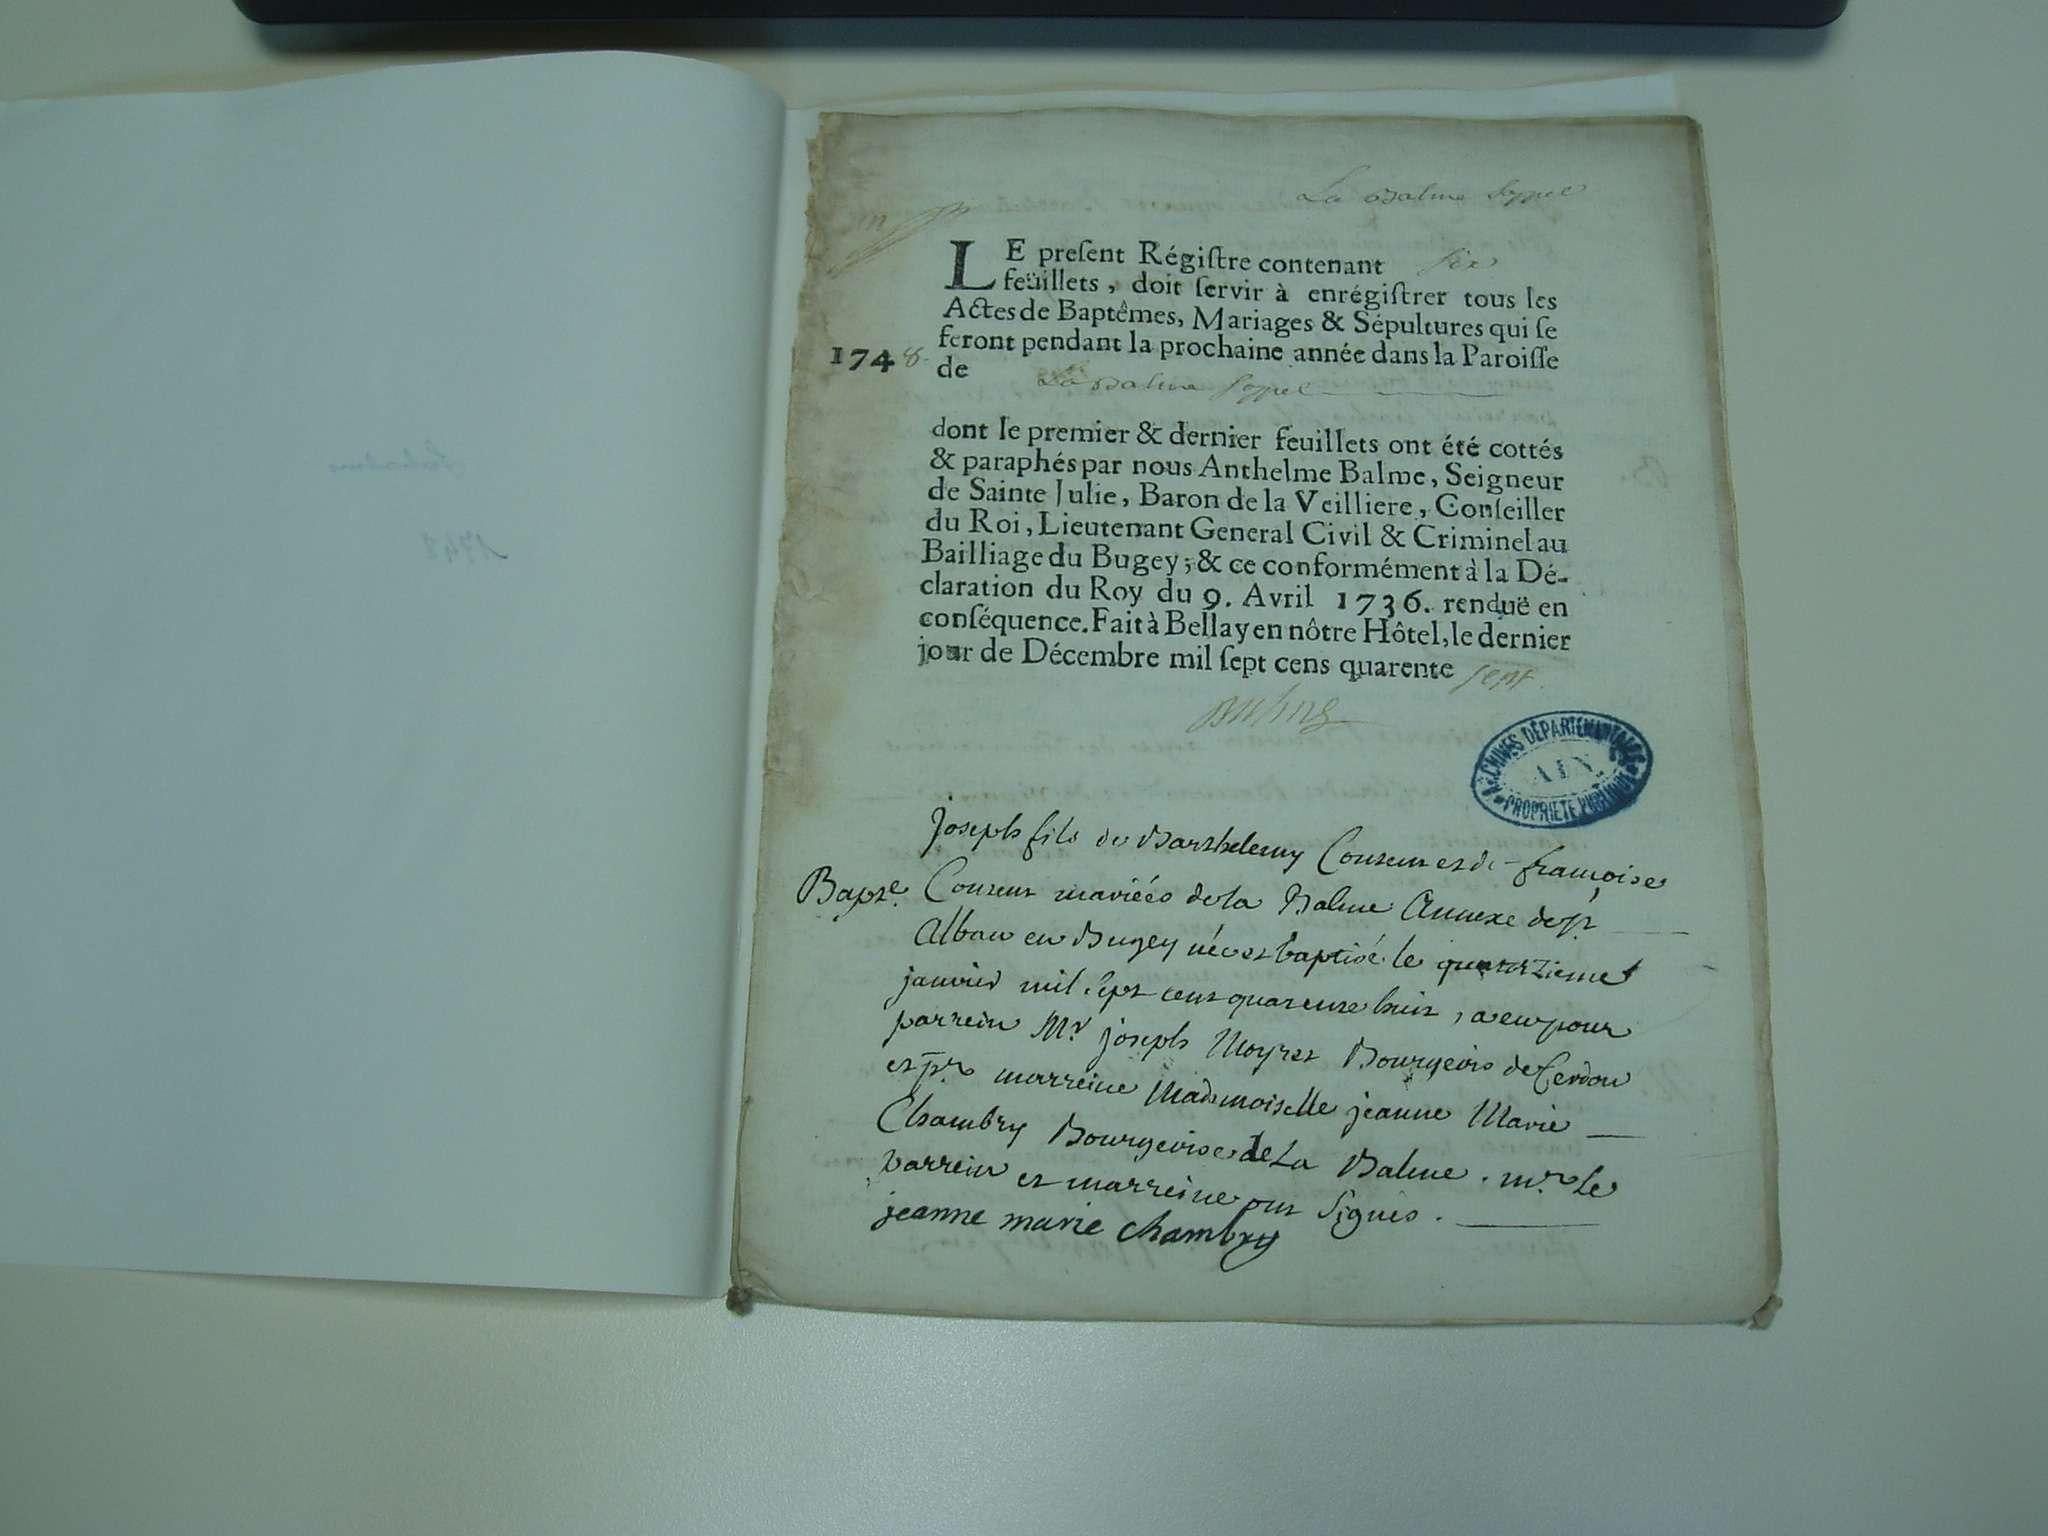 La Balme Seppel
LE preſent Régiſtre contenant six
feüillets, doit ſervir à enrégiſtrer tous les
Actes de Baptêmes, Mariages & Sépultures qui ſe
feront pendant la prochaine année dans la Paroiſſe
1748.
de La Balme Seppel
dont le premier & dernier feuillets ont été cottés
& paraphés par nous Anthelme Balme, Seigneur
de Sainte Julie, Baron de la Veilliere, Conſeiller
du Roi, Lieutenant General Civil & Criminel au
Bailliage du Bugey; & ce conformément à la Dé-
claration du Roy du 9. Avril 1736. renduë en
conſéquence. Fait à Bellay en nôtre Hôtel, le dernier
jour de Décembre mil ſept cens quarente sept.
Balme
ARCHIVES DÉPARTEMENTALES
AIN
PROPRIETE PUBLIQUE
Joseph fils de Barthelemy Couseur et de françoise
Bapt.e Couseur mariéés de la Balme Annexe de St
Alban en Bugey né et baptisé le quatorzieme
janvier mil sept cent quarente huit, a eu pour
parrein Mr joseph Moyret Bourgeois de Cerdon
et pr marreine Mademoiselle jeanne Marie
Chambry Bourgeoise de La Balme. mr. Le
parrein et marreine ont signés.
jeanne marie chambry
1748